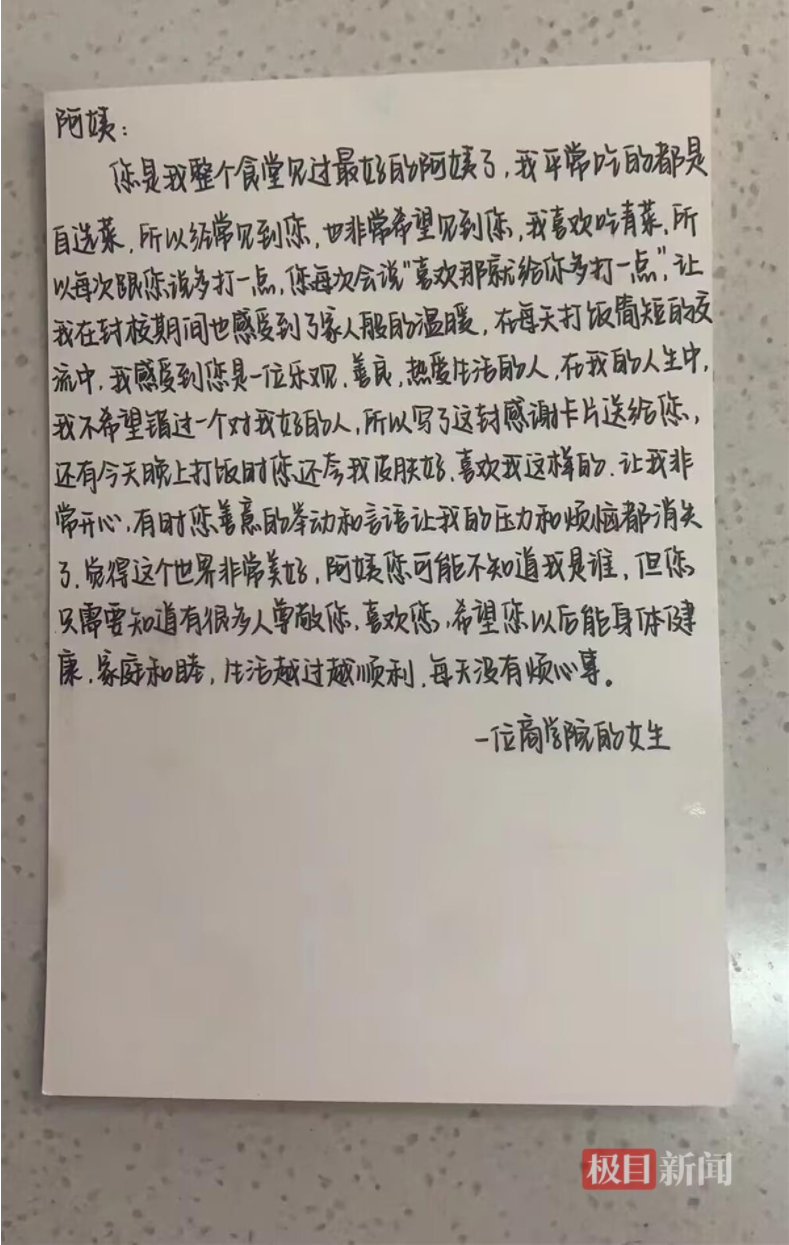 阿姨：
您是我整个食堂见过最好的阿姨了，我平常吃的都是
自选菜，所以经常见到您，也非常希望见到您，我喜欢吃青菜，所
以每次跟您说多打一点，您每次会说“喜欢那就给你多打一点”，让
我在封校期间也感受到了家人般的温暖，在每天打饭简短的交
流中，我感受到您是一位乐观、善良，热爱生活的人，在我的人生中，
我不希望错过一个对我好的人，所以写了这封感谢卡片送给您，
还有今天晚上打饭时您还夸我皮肤好、喜欢我这样的、让我非
常开心，有时您善意的举动和言语让我的压力和烦恼都消失
了、觉得这个世界非常美好，阿姨您可能不知道我是谁，但您
只需要知道有很多人尊敬您、喜欢您，希望您以后能身体健
康、家庭和睦，生活越过越顺利、每天没有烦心事。
一位商学院的女生
极目新闻